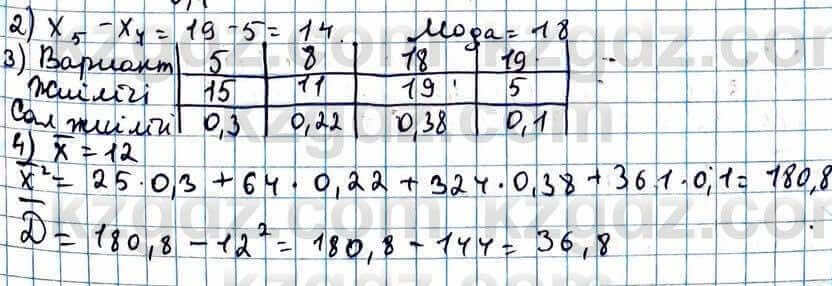 2) x₅ - x₄ = 19 - 5 = 14. Мода = 18
3) Вариант 5 8 18 19
Жиілігі 15 11 19 5
Сал жиілігі 0,3 0,22 0,38 0,1
4) x̄ = 12
x̄² = 25 · 0,3 + 64 · 0,22 + 324 · 0,38 + 361 · 0,1 = 180,8
D̄ = 180,8 - 12² = 180,8 - 144 = 36,8